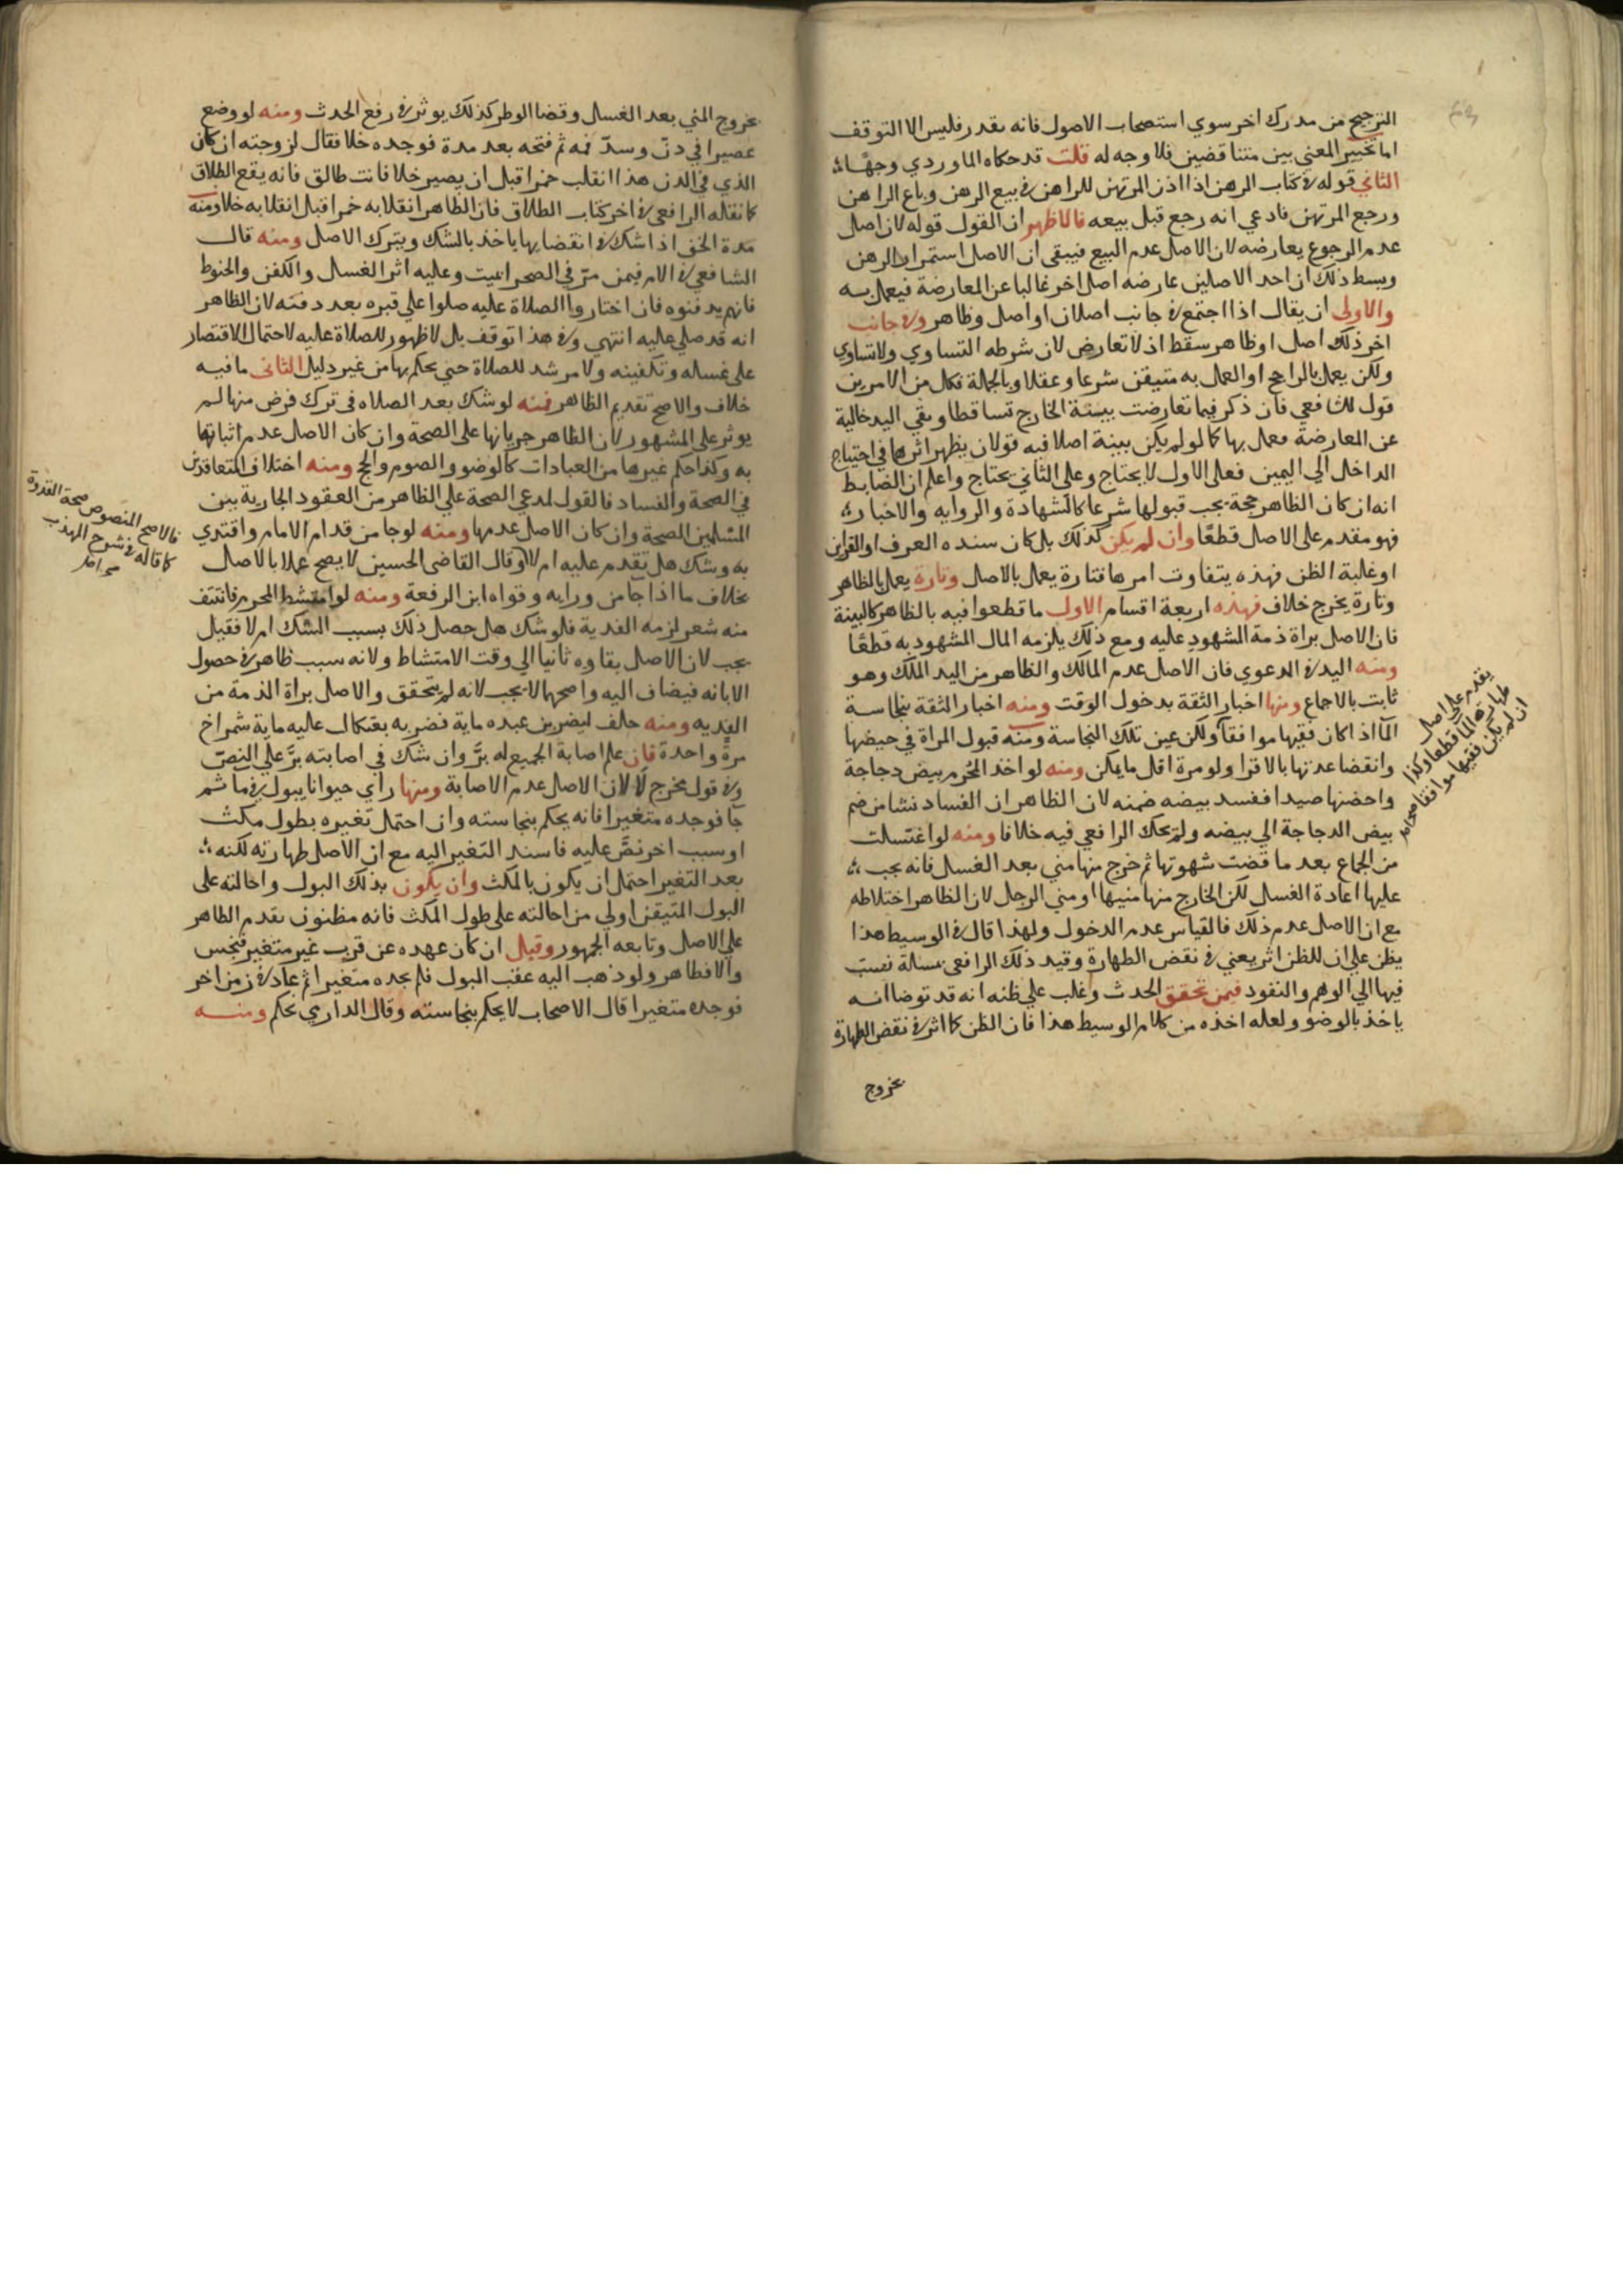 الترجيح من مدرك اخر سوي استصحاب الاصول فانه بقدر فليس الا التوقف
اما تخيير المعني بين متناقضين فلا وجه له قلت قد حكاه الماوردي وجها
الثاني قوله في كتاب الرهن اذا اذن المرتهن للراهن في بيع الرهن وباع الراهن
ورجع المرتهن فادعي انه رجع قبل بيعه فالاظهر ان القول قوله لان اصل
عدم الرجوع يعارضه لان الاصل عدم البيع فيبقي ان الاصل استمرار الرهن
وبسط ذلك ان احد الاصلين عارضه اصل اخر غالبا عن المعارضة فيعمل به
والاولي ان يقال اذا اجتمع في جانب اصلان او اصل وظاهر وفي جانب
اخر ذلك اصل او ظاهر سقط اذ لا تعارض لان شرطه التساوي ولا تساوي
ولكن يعمل بالراجح او العمل به متيقن شرعا وعقلا وبالجملة فكل من الامرين
قول للشافعي فان ذكر فيما تعارضت بينة الخارج تساقطا وبقي اليد خالية
عن المعارضة فعمل بها كما لو لم يكن ببينة اصلا فيه قولان يظهر اثرهما في احتياج
الداخل الي اليمين فعلي الاول لا يحتاج وعلي الثاني يحتاج واعلم ان الضابط
انه ان كان الظاهر حجة يجب قبولها شرعا كالشهادة والروايه والاخبار
فهو مقدم على الاصل قطعا وان لم يكن كذلك بل كان سنده العرف او القراين
او غلبة الظن فهذه يتفاوت امرها فتارة يعمل بالاصل وتارة يعمل بالظاهر
وتارة يخرج خلاف فهذه اربعة اقسام الاول ما قطعوا فيه بالظاهر كالبينة
فان الاصل براة ذمة المشهود عليه ومع ذلك يلزمه المال المشهود به قطعا
ومنه اليد في الدعوي فان الاصل عدم المالك والظاهر من اليد الملك وهو
ثابت بالاجماع ومنها اخبار الثقة بدخول الوقت ومنه اخبار الثقة بنجاسة
الما اذا كان فقيها موافقا ولكن عين تلك النجاسة ومنه قبول المراة في حيضها
وانقضا عدتها بالاقرا ولو مرة اقل ما يمكن ومنه لو اخذ المحرم بيض دجاجة
واحضنها صيدا ففسد بيضه ضمنه لان الظاهر ان الفساد نشا من ضم
بيض الدجاجة الي بيضه ولم يحك الرافعي فيه خلافا ومنه لو اغتسلت
من الجماع بعد ما قضت شهوتها ثم خرج منها مني بعد الغسل فانه يجب
عليها اعادة الغسل لكن الخارج منها منيها او مني الرجل لان الظاهر اختلاطه
مع ان الاصل عدم ذلك فالقياس عدم الدخول ولهذا قال في الوسيط هذا
يظن علي ان للظن اثر يعني في نقض الطهارة وقيد ذلك الرافعي مسالة نسبت
فيها الي الوهم والتفود فيمن تحقق الحدث وغلب علي ظنه انه قد توضا انه
ياخذ بالوضو ولعله اخذه من كلام الوسيط هذا فان الظن كما اثر في نقض الطهارة
بخروج
يقدم على اصل
طهارة الما قطعا وكذا
ان لم يكن فقيها موافقا
بخروج المني بعد الغسل وقضا الوطر كذلك يوثر في رفع الحدث ومنه لو وضع
عصيرا في دن وسد فمه ثم فتحه بعد مدة فوجده خلا فقال لزوجته ان كان
الذي في الدن هذا انقلب خمرا قبل ان يصير خلا فانت طالق فانه يقع الطلاق
كما نقله الرافعي في اخر كتاب الطلاق فان الظاهر انقلابه خمرا قبل انقلابه خلا ومنه
مدة الخف اذا شك في انقضايها ياخذ بالشك ويترك الاصل ومنه قال
الشافعي في الام فيمن مر في الصحرا بميت وعليه اثر الغسل والكفن والحنوط
فانهم يدفنوه فان اختاروا الصلاة عليه صلوا علي قبره بعد دفنه لان الظاهر
انه قد صلي عليه انتهي وفي هذا توقف بل لا ظهور للصلاة عليه لاحتمال الاقتصار
على غسله وتكفينه ولا مرشد للصلاة حتي يحكم بها من غير دليل الثانى ما فيه
خلاف والاصح تقديم الظاهر فمنه لو شك بعد الصلاه في ترك فرض منها لم
يوثر علي المشهور لان الظاهر جريانها على الصحة وان كان الاصل عدم اثباتها
به وكذا حكم غيرها من العبادات كالوضو والصوم والحج ومنه اختلاف المتعاقدين
في الصحة والفساد فالقول لمدعي الصحة علي الظاهر من العقود الجارية بين
المسلمين الصحة وان كان الاصل عدمها ومنه لو جا من قدام الامام واقتدي
به وشك هل تقدم عليه ام لا وقال القاضى الحسين لا يصح عملا بالاصل
بخلاف ما اذا جا من ورايه وقواه ابن الرفعة ومنه لو امتشط المحرم فانتتف
منه شعر لزمه الفدية فلو شك هل حصل ذلك بسبب الشك ام لا فقيل
يجب لان الاصل بقاوه ثانيا الي وقت الامتشاط ولانه سبب ظاهر في حصول
الابانه فيضاف اليه واصحهما لا يجب لانه لم يتحقق والاصل براة الذمة من
الفديه ومنه حلف ليضربن عبده ماية فضربه بعثكال عليه ماية شمراخ
مرة واحدة فان علم اصابة الجميع له بر وان شك في اصابته بر علي النص
وفي قول مخرج لا لان الاصل عدم الاصابة ومنها راي حيوانا يبول في ما ثم
جا فوجده متغيرا فانه يحكم بنجاسته وان احتمل تغيره بطول مكث
او سبب اخر نص عليه فاسند التغير اليه مع ان الاصل طهارته لكنه
بعد التغير احتمل ان يكون بالمكث وان يكون بذلك البول واحالته على
البول المتيقن اولي من احالته على طول المكث فانه مظنون بقدم الظاهر
علي الاصل وتابعه الجمهور وقيل ان كان عهده عن قرب غير متغير فنجس
والا فطاهر ولو ذهب اليه عقب البول فلم يجده متغيرا ثم عاد في زمن اخر
فوجده متغيرا قال الاصحاب لا يحكم بنجاسته وقال الدارمي يحكم ومنه
فالاصح المنصوص صحة القدوة
كما قاله في شرح المهذب